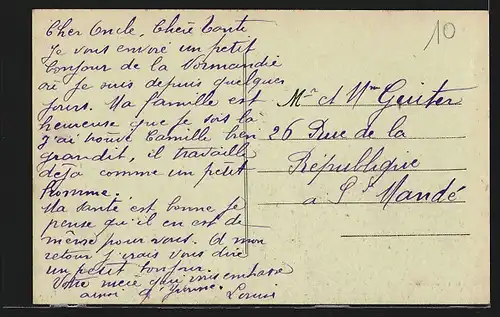 Cher Oncle, Chère Tante
Je vous envoie un petit
bonjour de la Normandie
où je suis depuis quelques
jours. Ma famille est
heureuse que je sois là
J'ai trouvé Camille bien
grandit, il travaille
déjà comme un petit
homme.
Ma santé est bonne je
pense qu'il en est de
même pour vous. A mon
retour j'irais vous dire
un petit bonjour.
Votre nièce qui vous embrasse
ainsi q' Yvonne. Louis
10
Mr et Mme Geuiter
26 Rue de la
République
a St Mandé